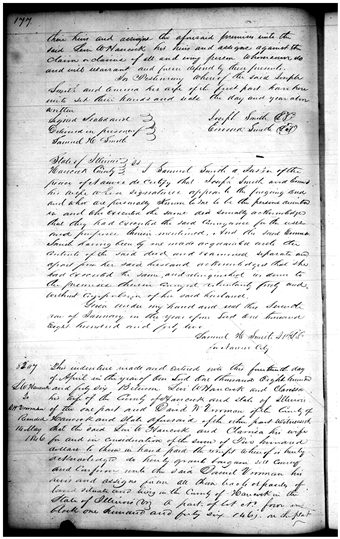 177
their heirs and assigns the aforesaid premises unto the
said Levi W Hancock his heirs and assigns against the
claim or claims of all and every person whomsoever do
and will warrant and forever defend by these presents.
In Testimony whereof the said Joseph
Smith and Emma his wife of the first part have here
unto set their hands and seals the day and year above
written
Signed Sealed and
Delivered in presence of
Samuel H. Smith
Joseph Smith
Emma Smith
State of Illinois
Hancock County ss
I Samuel Smith a Justice of the
peace of Nauvoo do certify that Joseph Smith and Emma
his wife whose signatures appear to the foregoing deed
and who are personally known to me to be the persons described
in and who executed the same did severally acknowledge
that they had executed the said conveyance for the uses
and purposes therein mentioned, and the said Emma
Smith having been by me made acquainted with the
contents of the said deed and examined separate and
apart from her said husband acknowledged that she
had executed the same and relinquished her dower to
the premises therein conveyed voluntarily freely and
without compulsion of her said husband.
Given under my hand and seal this
of January in the year of our Lord one thousand
eight hundred and forty two
Samuel H. Smith
for Nauvoo City
5207
L W Hancock
to
Vrooman
14 May
1846
This indenture made and entered into this fourteenth day
of April in the year of our Lord One thousand Eight hundred
and forty six Between Levi W Hancock and Clarissa
his wife of the County of Hancock and State of Illinois
of the one part and David W Vrooman of the County of
Hancock and State aforesaid of the other part Witnesseth
that the said Levi W Hancock and Clarissa his wife
for and in consideration of the sum of Five hundred
dollars to them in hand paid the receipt whereof is hereby
acknowledged do hereby grant bargain sell convey
and Confirm unto the said Vrooman his
heirs and assigns forever all those tracts or parcels of
land situate and lying in the County of Hancock in the
State of Illinois viz A part of lot No. four in
block one hundred and forty six (146) in the plat